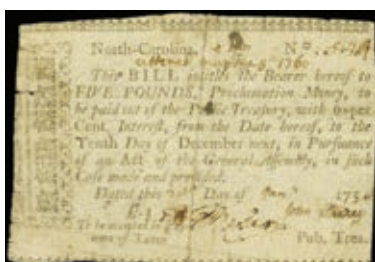 North-Carolina. Nº.
1760
This BILL intitles the Bearer hereof to
FIVE POUNDS, Proclamation Money, to
be paid out of the Public Treasury, with 6 per
Cent. Interest, from the Date hereof, to the
Tenth Day of December next, in Pursuance
of an Act of the General Assembly, in such
Case made and provided.
Dated this Day of 175
John
To be
Taxes Pub. Trea.